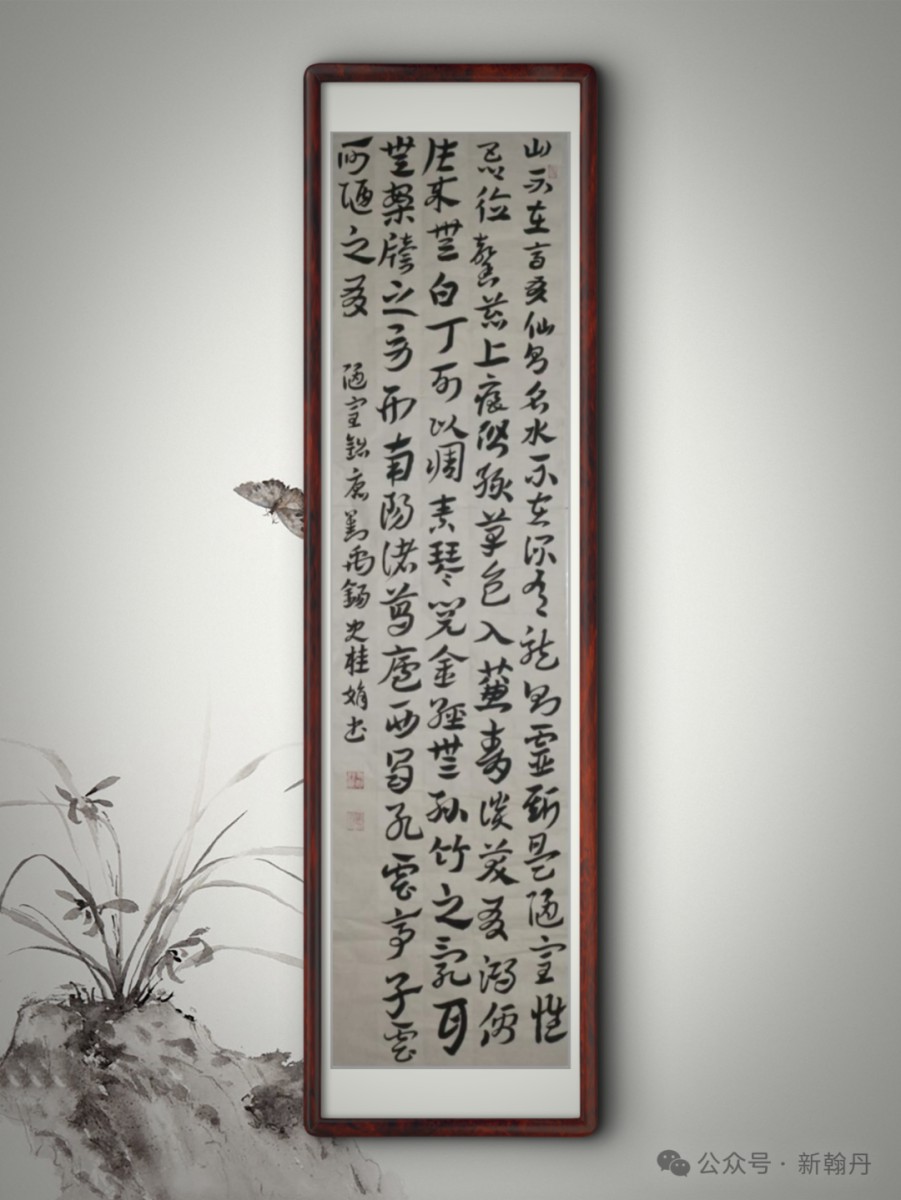 山不在高有仙則名水不在深有龍則靈斯是陋室惟
吾德馨苔上痕階綠草色入簾青談笑有鴻儒
往來無白丁可以調素琴閱金經無絲竹之亂耳
無案牘之勞形南陽諸葛廬西蜀孔雲亭子雲
何陋之有 陋室銘唐劉禹錫史桂娟書
公众号·新翰丹